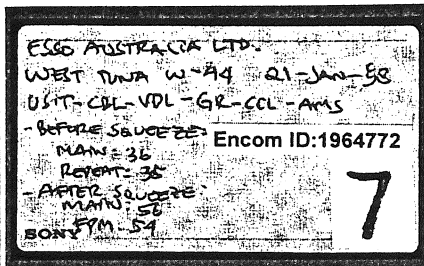 ESSO AUSTRALIA LTD.
WEST TUNA W-44 21-JAN-98
USIT-CBL-VDL-GR-CCL-AMS
- BEFORE SQUEEZE:
MAIN = 36
REPEAT = 35
- AFTER SQUEEZE:
MAIN = 56
FPM - 54
SONY
Encom ID:1964772
7